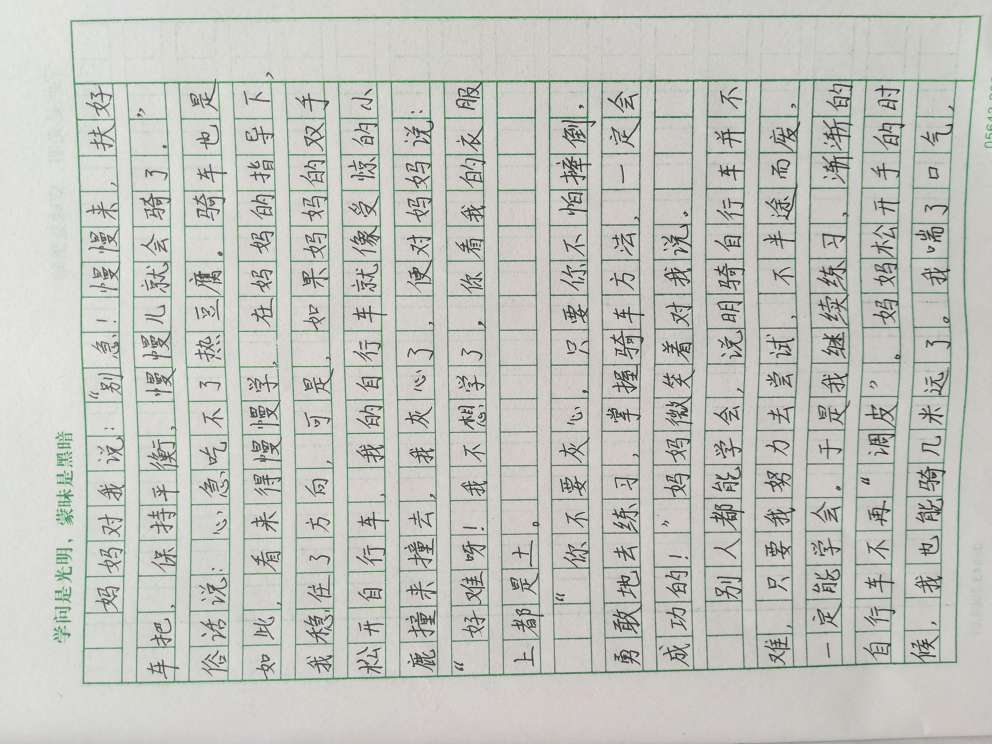 学问是光明，蒙昧是黑暗
妈妈对我说：“别急！慢慢来，扶好
车把，保持平衡，慢慢儿就会骑了．”
俗话说：心急吃不了热豆腐。骑车也是
如此，看来得慢慢学，在妈妈的指导下，
我稳住了方向，可是，如果妈妈的双手
松开自行车，我的自行车就像受惊的小
鹿撞来撞去，我灰心了，便对妈妈说：
“好难呀！我不想学了，你看我的衣服
上都是土。
“你不要灰心，只要你不怕摔倒，
勇敢地去练习，掌握骑车方法，一定会
成功的！”妈妈微笑着对我说。
别人都能学会，说明骑自行车并不
难，只要我努力去尝试，不半途而废，
一定能学会。于是我继续练习，渐渐的
自行车不再“调皮”。妈妈松开手的时
候，我也能骑几米远了。我喘了口气，